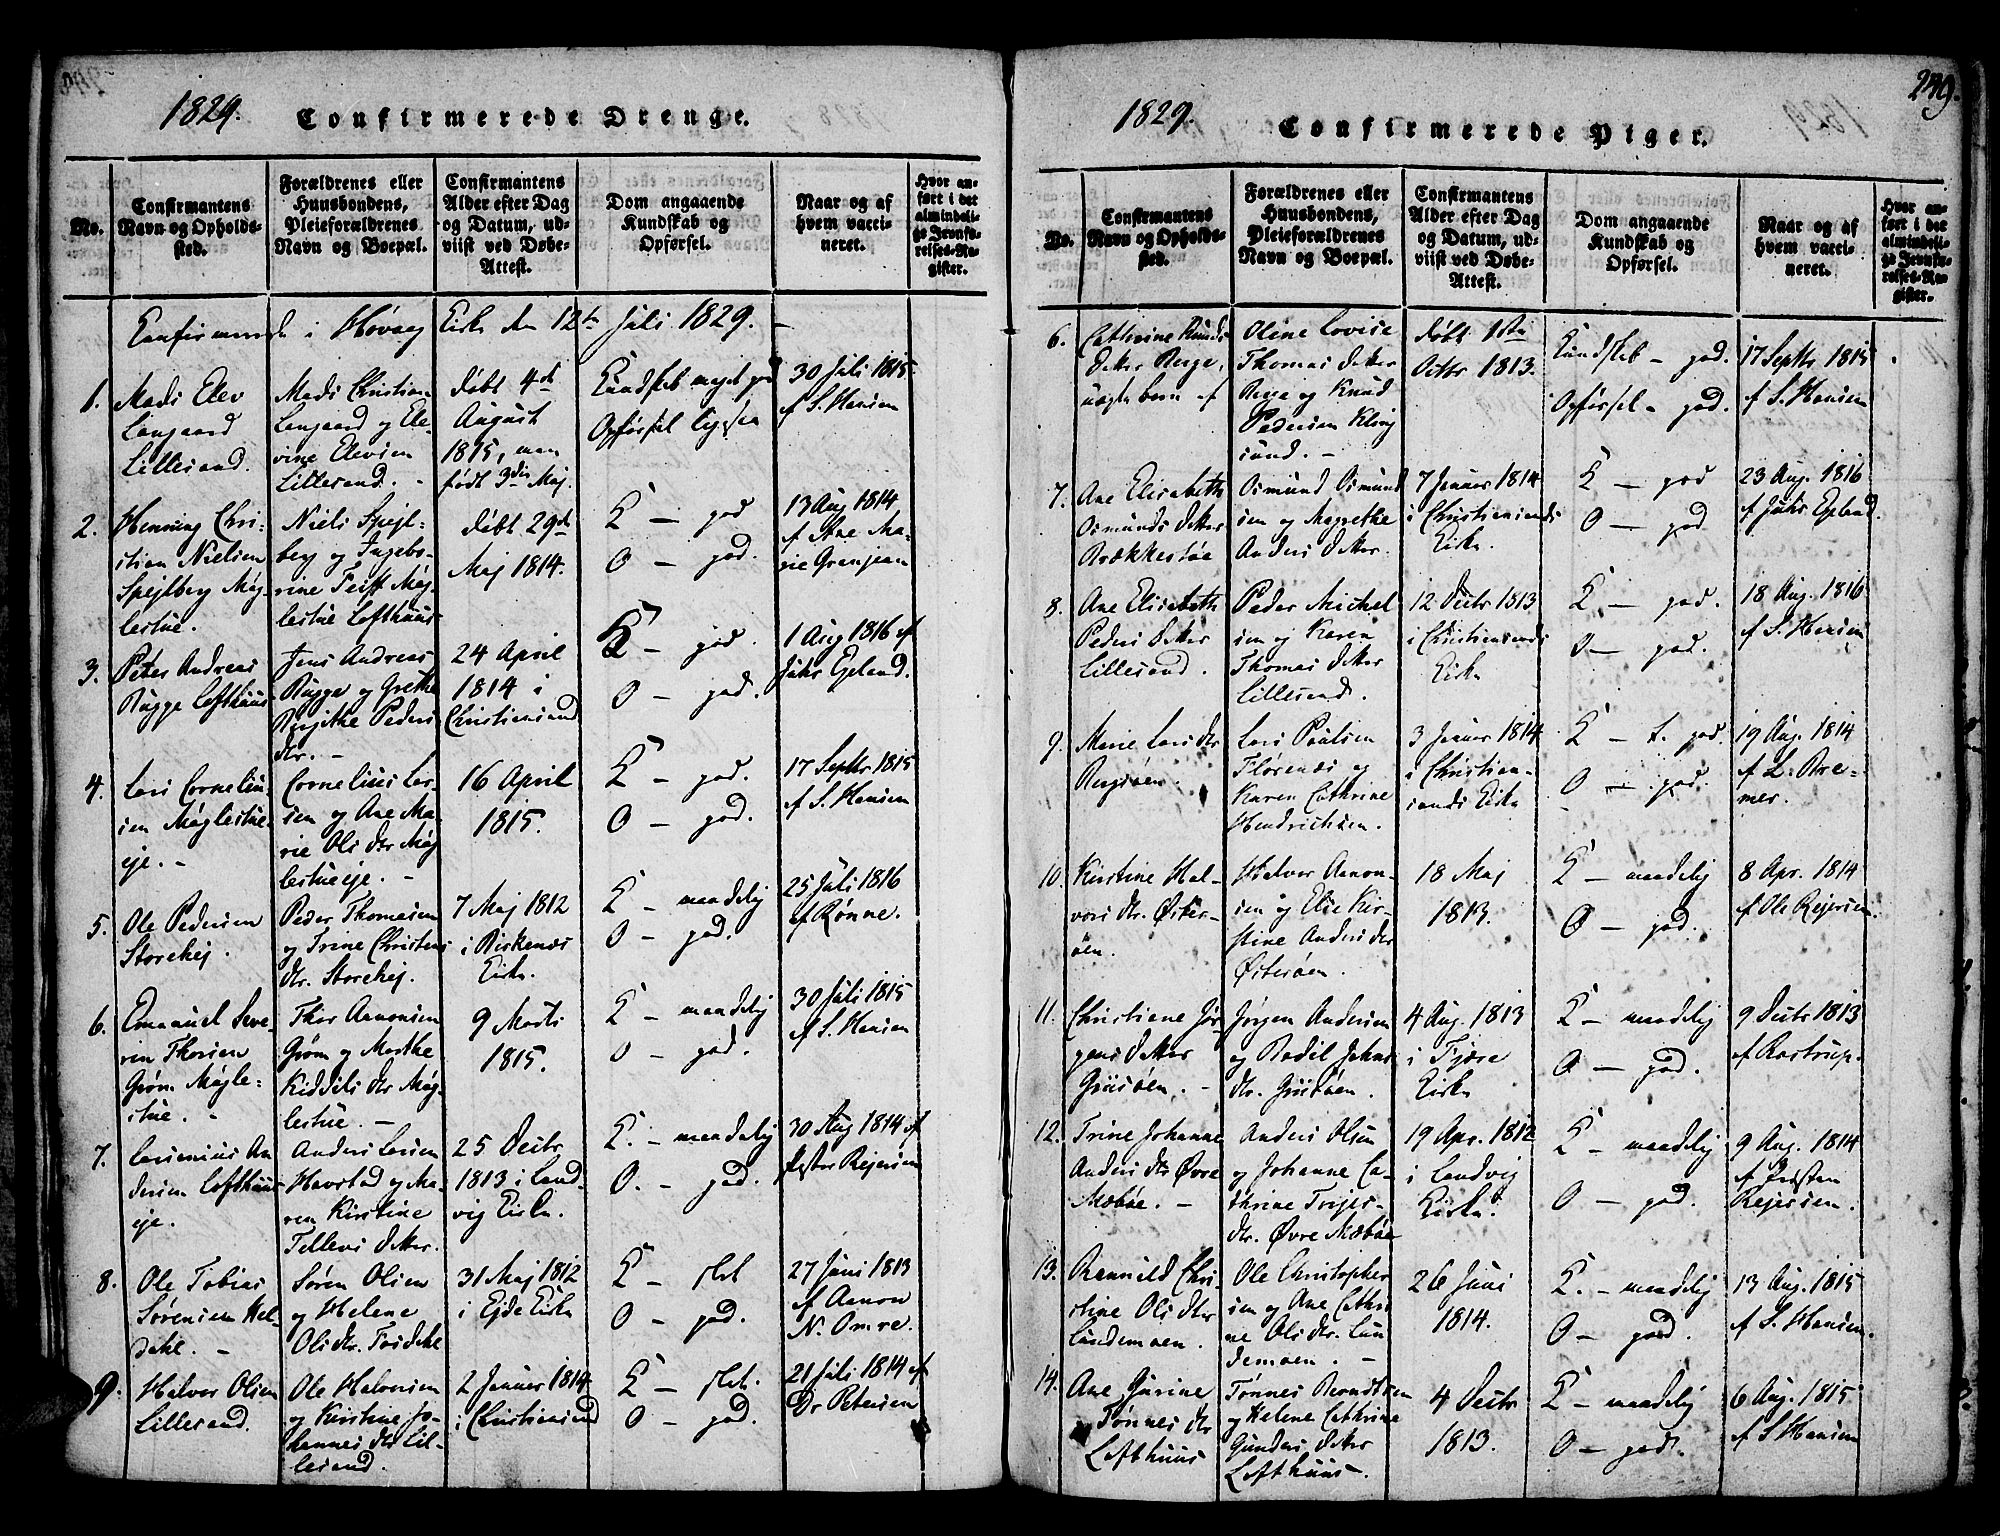 1829.
Confirmerede Drenge.
No.
Confirmantens
Navn og Opholds-
sted.
Forældrenes eller
Huusbondens,
Pleieforældrenes
Navn og Boepæl.
Confirmantens
Alder efter Dag
og Datum, ud-
viist ved Døbe-
Attest.
Dom angaaende
Kundskab og
Opførsel.
Naar og af
hvem vacci-
neret.
Hvor an-
ført i det
almindeli-
ge Jevnfø-
relses-Re-
gister.
Confirmerede i Høvaag Kirke den 12te Juli 1829. –
1.
Mads Elev
Langaard
Lillesand.
Mads Christian
Langaard og Ele-
vine Elevsen
Lillesand. –
døbt 4de
August
1815, men
født 3die Maj.
Kundskab meget god
Opførsel
30 Juli 1815
af S. Hansen
2.
Henning Chri-
stian Nielsen
Spejlberg Møg-
lestue.
Niels Spejl-
berg og Ingebo-
rine Feist Møg-
lestue Lofthuus
døbt 29de
Maj 1814.
K – god
O – god.
13 Aug 1814
af Ane Ma-
rie Granjean
3.
Peter Andreas
Rugge Lofthuus
Jens Andreas
Rugge og Grethe
Birgithe Peders
dtr. –
24 April
1814 i
Christiansand
K – god.
O – god.
1 Aug 1816 af
Johs Egeland.
4.
Lars Corneliu-
sen Møglestue-
eje. –
Cornelius Lar-
sen og Ane Ma-
rie Ols dtr Møg
lestueeje. –
16 April
1815.
K – god.
O – god.
17 Septbr 1815
af S. Hansen
5.
Ole Pedersen
Storehej.
Peder Thomasen
og Trine Christens
dtr. Storehej.
7 Maj 1812
i Birkenæs
Kirke.
K – maadelig
O – god.
25 Juli 1816
af Rønne.
6.
Emanuel Seve-
rin Thorsen
Grøm Møgle-
stue. –
Thor Aanonsen
Grøm og Marthe
Kiddils dtr Møg
lestue. –
9 Marts
1815.
K – maadelig
O – god.
30 Juli 1815
af S. Hansen
7.
Larsenius An
dersen Lofthuus-
eje.
Anders Larsen
Havstad og Ma-
ren Kirstine
Tellevs datter.
25 Decbr
1813 i Land-
vig Kirke.
K. – maadelig
O. – god.
30 Aug 1814 af
Rejersen
8.
Ole Tobias
Sørensen Kal-
dahl. –
Søren Olsen
og Helene
Ols dtr.
31 Maj 1812
i Ejde Kirke
K – slet
O – god.
27 Juni 1813
af Aanon
N. Omre.
9.
Halvor Olsen
Lillesand.
Ole Halvorsen
og Kirstine Jo-
hannes dtr Lil-
lesand.
2 Januar 1814
i Christiansand
K – slet.
O – god.
21 Juli 1814 af
Dr Petersen
249.
1829.
Confirmerede Piger.
No.
Confirmantens
Navn og Opholds-
sted.
Forældrenes eller
Huusbondens,
Pleieforældrenes
Navn og Boepæl.
Confirmantens
Alder efter Dag
og Datum, ud-
viist ved Døbe-
Attest.
Dom angaaende
Kundskab og
Opførsel.
Naar og af
hvem vacci-
neret.
Hvor an-
ført i det
almindeli-
ge Jevnfø-
relses-Re-
gister.
6.
Cathrine Knuds
datter Berge,
uægte barn af
Oline Lovise
Thomas datter
Berge og Knud
Pedersen Kling
sund. –
døbt 1ste
Octbr 1813.
Kundskab – god.
Opførsel – god.
17 Septbr 1815
af S. Hansen
7.
Ane Elisabeth
Osmunds datter
Brækkestøe
Osmund Osmund
sen og Magrethe
Anders datter.
7 Januar 1814
i Christiansands
Kirke.
K – god
O – god
23 Aug. 1816
af Johs Egeland.
8.
Ane Elisabeth
Peders datter
Lillesand.
Peder Michel
sen og Karen
Thomas datter
Lillesand.
12 Decbr 1813
i Christiansands
Kirke
K – god.
O – god.
18 Aug. 1816
af S. Hansen
9.
Marie Lars dtr
Bergsøen.
Lars Poulsen
Florenæs og
Karen Cathrine
Hendrichsen.
3 Januar 1814
i Christian-
sands Kirke
K – t. god.
O – god.
19 Aug. 1814
af L. Bre-
mer.
10.
Kirstine Hal-
vors dtr. Øster-
øen.
Halvor Aanon-
sen og Else Kir-
stine Anders dtr
Østerøen.
18 Maj
1813.
K – maadelig
O – god.
8 Apr. 1814
af Ole Rejersen.
11.
Christiane Jør-
gens datter
Griisøen. –
Jørgen Andersen
og Bodil Johns
dtr. Griisøen.
4 Aug. 1813
i Fjære
Kirke
K – maadelig
O – god.
9 Decbr 1813
af Rostrup.
12.
Trine Johanne
Anders dtr Øvre
Mæbøe. –
Anders Olsen
og Johanne Ca-
thrine Terjes-
dtr. Øvre Mæbøe
19 Apr. 1812
i Landvig
Kirke.
K – maadelig
O – god.
9 Aug. 1814
af
Rejersen.
13.
Rannild Chri-
stine Ols dtr
Lundemoen.
Ole Christopher
sen og Ane Cathri
ne Ols dtr. Lun
demoen. –
26 Juni
1814.
K. – maadelig
O – god.
13 Aug. 1815
af S. Hansen.
14.
Ane Gurine
Tønnes dtr
Lofthuus
Tønnes Berndtsen
og Helene Cathrine
Gunders datter
Lofthuus –
4 Decbr
1813.
K – maadelig
O – god.
6 Aug. 1815
af S Hansen